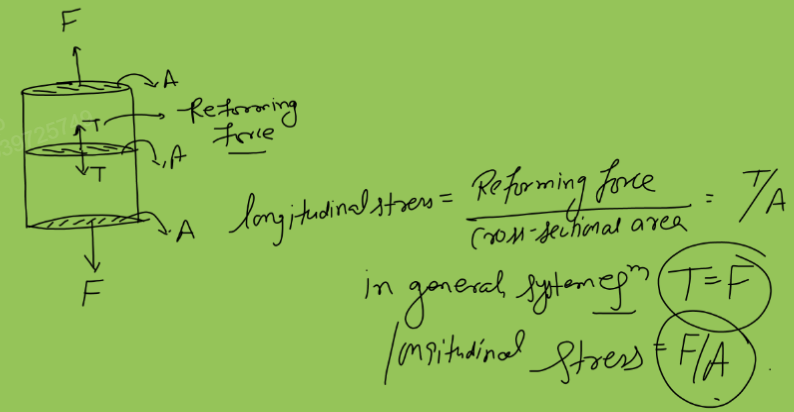 F
A
T
Reforming
force
A
T
A
F
longitudinal stress = Reforming force / cross-sectional area = T/A
in general, system eqᵐ T = F
longitudinal stress = F/A